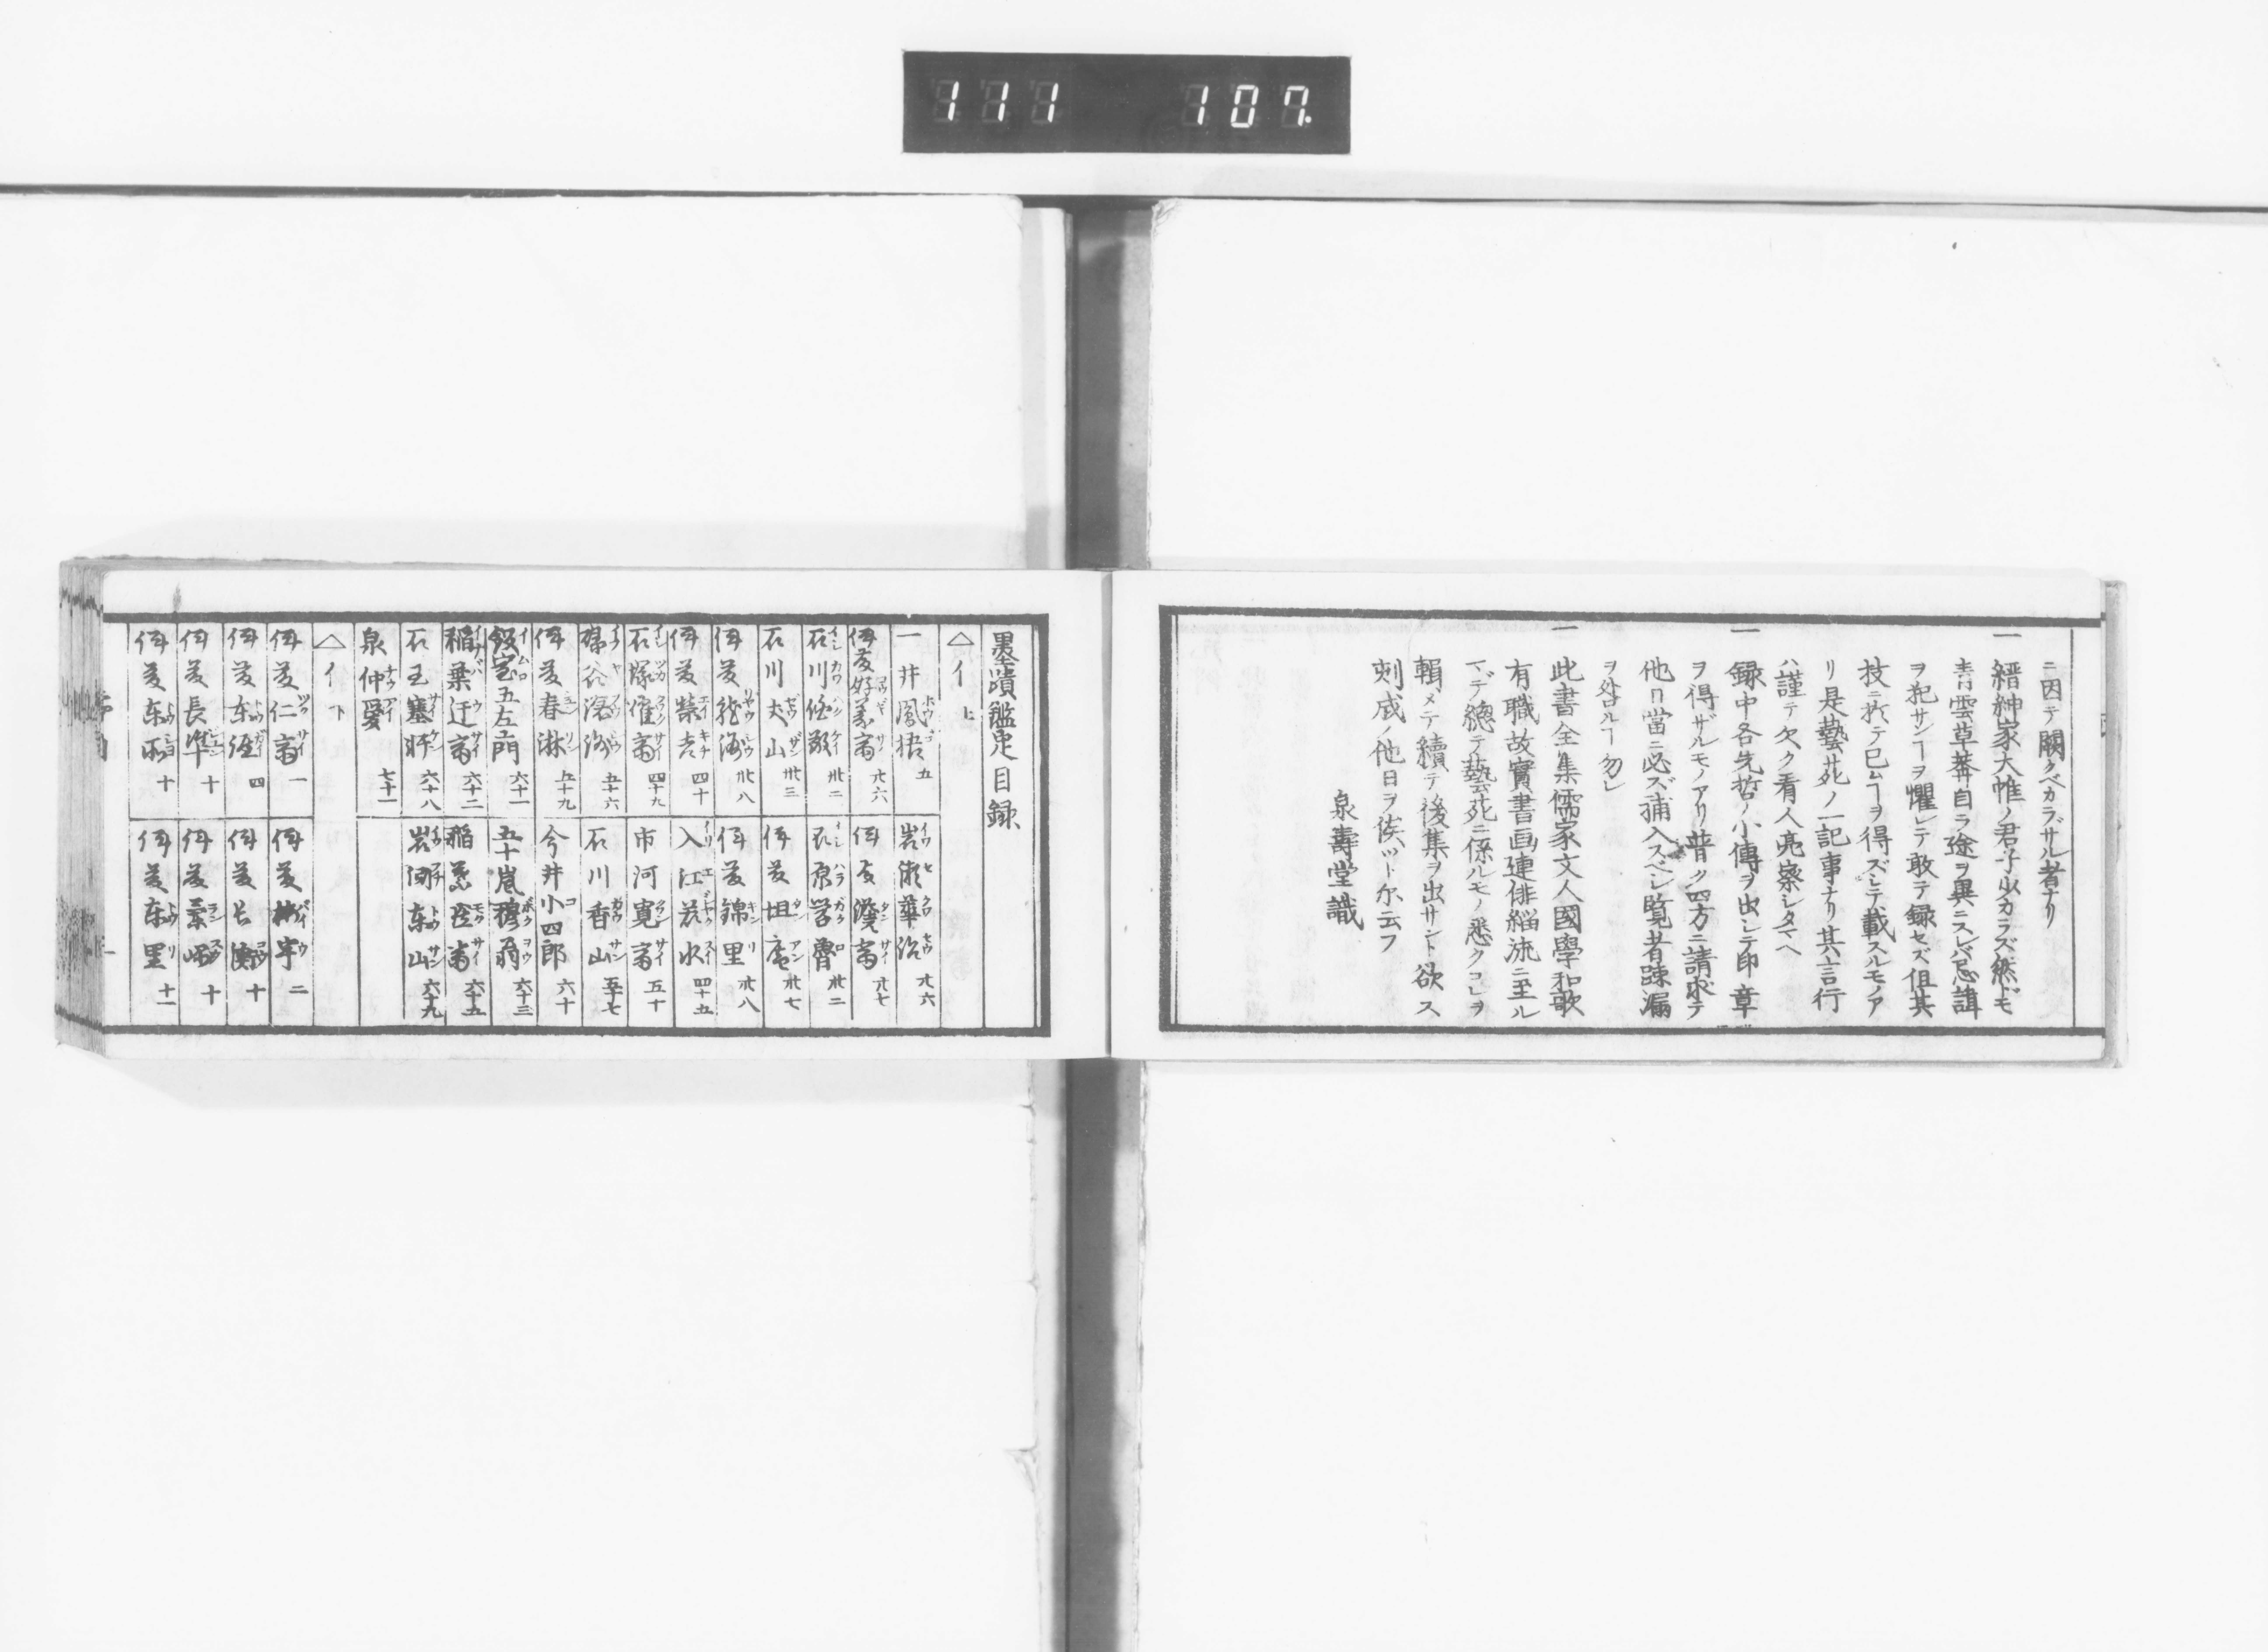 111 107.
ニ因テ闕クベカラザル者ナリ
一 縉紳家大帷ノ君子少カラズ然ドモ
青雲草莽自ラ途ヲ異ニスレバ忌諱
ヲ犯サンヿヲ懼レテ敢テ録セズ但其
技ニ於テ已ムヿヲ得ズシテ載スルモノア
リ是藝苑ノ一記事ナリ其言行
ハ謹テ欠ク看人亮察シタマヘ
一 録中各先哲ノ小傳ヲ出シテ印章
ヲ得ザルモノアリ普ク四方ニ請求テ
他日當ニ必ズ補入スベシ覧者疎漏
ヲ咎ルヿ勿レ
一 此書全集儒家文人國學和歌
有職故實書画連俳緇流ニ至ル
マデ總テ藝苑ニ係ルモノ悉クコレヲ
輯メテ續テ後集ヲ出サント欲ス
刻成ノ他日ヲ俟ツト尓云フ
泉壽堂識
墨蹟鑑定目録
△イ 上
一井鳳梧 五
岩瀬華沼 廿六
伊藤好義斎 廿六
伊藤澹斎 廿七
石川 卅二
石原学魯 卅二
石川丈山 卅三
伊藤坦庵 卅七
伊藤龍洲 卅八
伊藤錦里 卅八
伊藤榮吉 四十
入江若水 四十五
石塚確斎 四十九
市河寛斎 五十
五十六
石川香山 五十七
伊藤春淋 五十九
今井小四郎 六十
飯室五左衛門 六十一
五十嵐穆翁 六十三
稲葉迂斎 六十二
稲葉黙斎 六十五
石王塞軒 六十八
岩間東山 六十九
泉仲愛 七十一
△イ 下
伊藤仁斎 一
伊藤梅宇 二
伊藤東涯 四
伊藤 十
伊藤長準 十
伊藤蘭嵎 十
伊藤東所 十
伊藤東里 十一